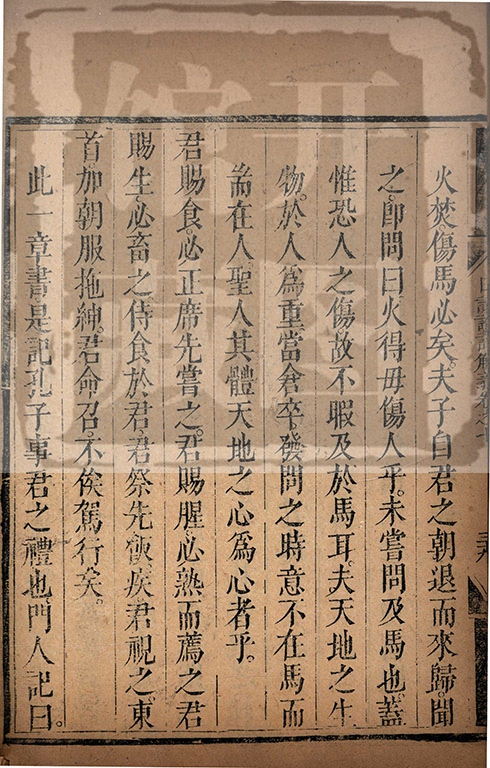 火焚傷馬必矣。夫子自君之朝退而來歸。聞
之。即問曰火得毋傷人乎。未嘗問及馬也。蓋
惟恐人之傷故不暇及於馬耳。夫天地之生
物。於人為重當倉卒發問之時意不在馬而
耑在人聖人其體天地之心為心者乎。
君賜食。必正席先嘗之。君賜腥。必熟而薦之君
賜生。必畜之。侍食於君。君祭先飯。疾君視之。東
首加朝服拖紳。君命召。不俟駕行矣。
此一章書。是記孔子事君之禮也。門人記曰。